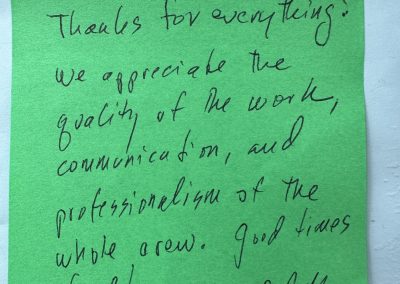 Thanks for everything!
We appreciate the
quality of the work,
communication, and
professionalism of the
whole crew. Good times